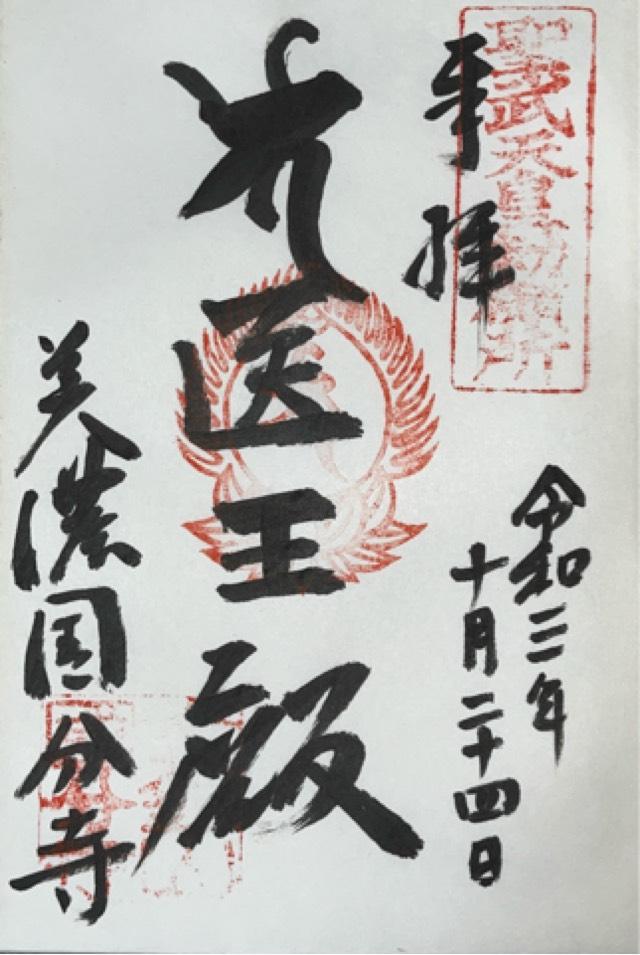 聖武天皇勅願所
奉拝
令和三年
十月二十四日
医王殿
美濃国分寺